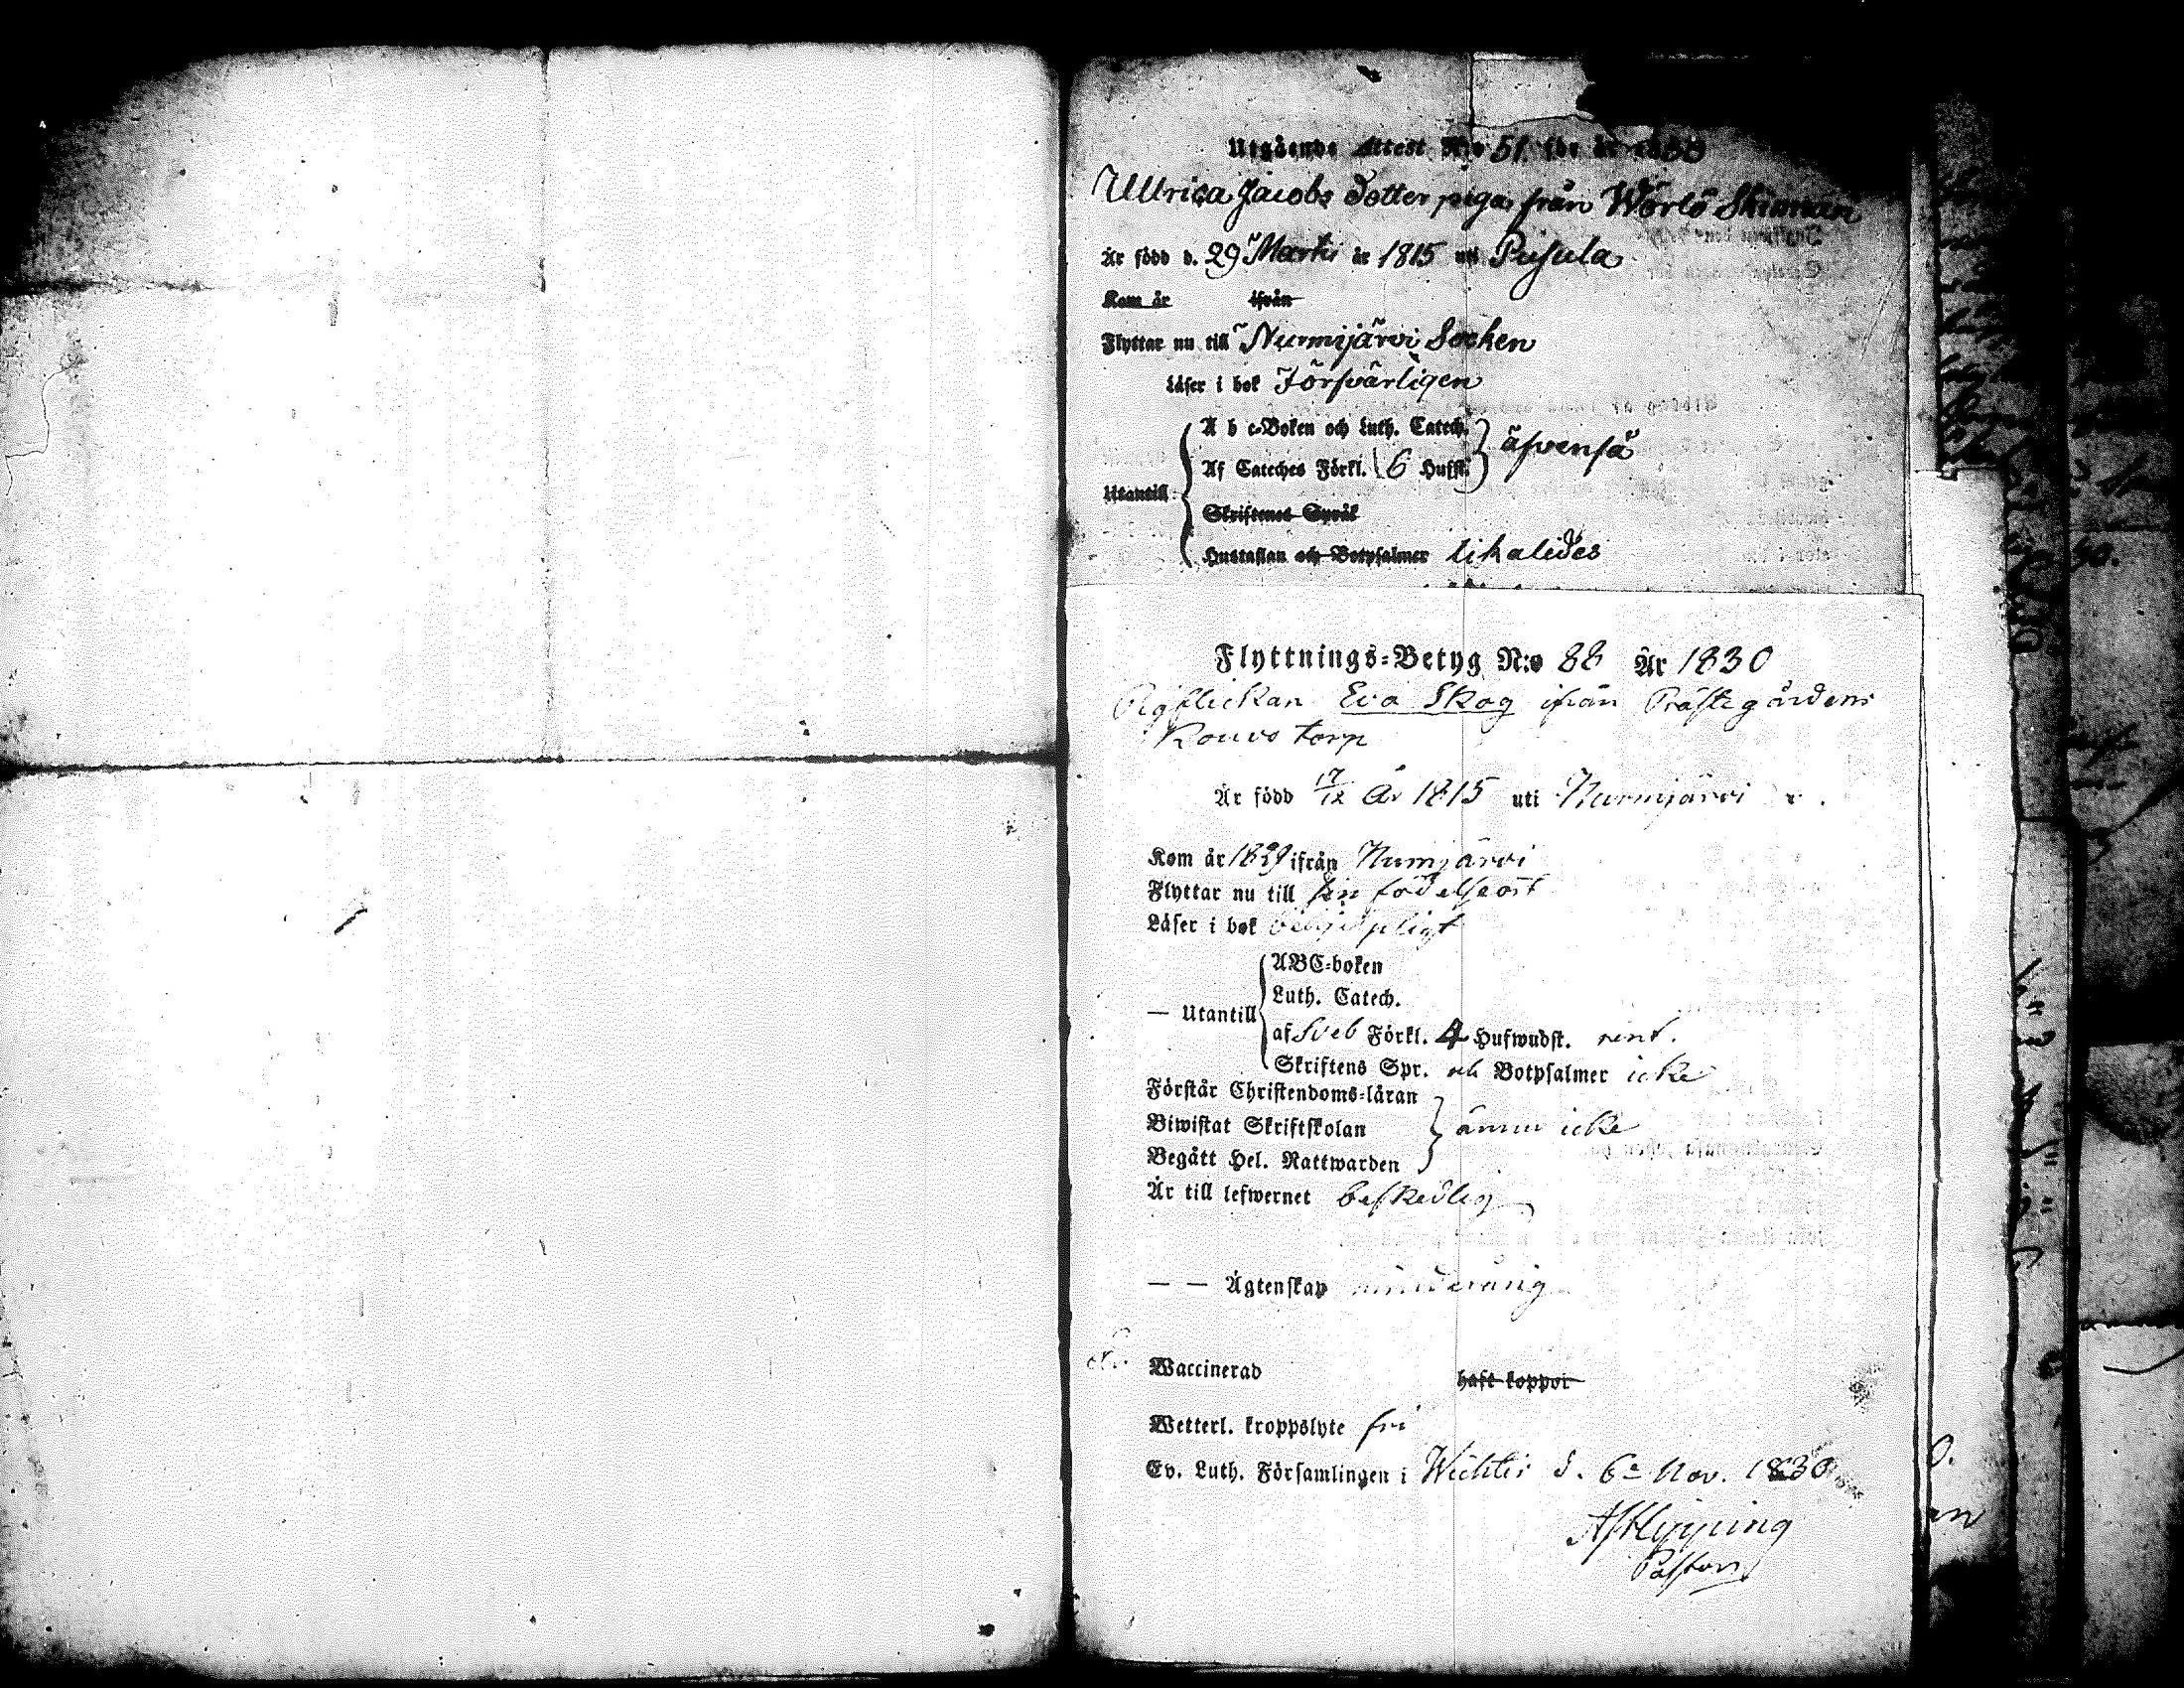 Utgående Attest N:o 51. för år 18
Ullrica Jacobs dotter piga från Wörlö
Är född d. 29 Martii år 1815 uti Pusula
Kom år ifrån
Flyttar nu till Nurmijärvi Socken
Läser i bok Försvarligen
A b c-Boken och Luth. Catech.
Af Cateches Förkl. 6 Hufst. äfvenså
Utantill
Skriftenes Språk
Hustaflan och Botpsalmer likaledes
Flyttnings-Betyg N:o 88 År 1830
Pigflickan Eva Skog ifrån Prästegårdens
torp
Är född 17/12 År 1815 uti Nurmijärvi
Kom år 1829 ifrån Numjärvi
Flyttar nu till sin födelseort
Läser i bok
ABC-boken
Luth. Catech.
— Utantill
af Sveb Förkl. 4 Hufwudst. rent.
Skriftens Spr. och Botpsalmer icke
Förstår Christendoms-läran
Biwistat Skriftskolan ännu icke
Begått Hel. Nattwarden
Är till lefwernet beskedlig
— — Ägtenskap minderårig
Är Waccinerad haft koppor
Wetterl. kroppslyte fri
Ev. Luth. Församlingen i Wichtis d. 6 Nov. 1830
AfHypping
Pastor